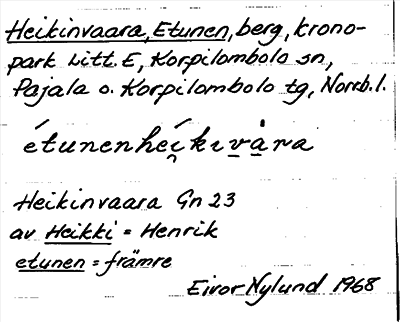 Heikinvaara, Etunen, berg, krono-
park Litt. E, Korpilombolo sn,
Pajala o. Korpilombolo tg, Norrb.l.
étunenhéi̯kɩvȧra
Heikinvaara Gn 23
av Heikki = Henrik
etunen = främre
Eivor Nylund 1968